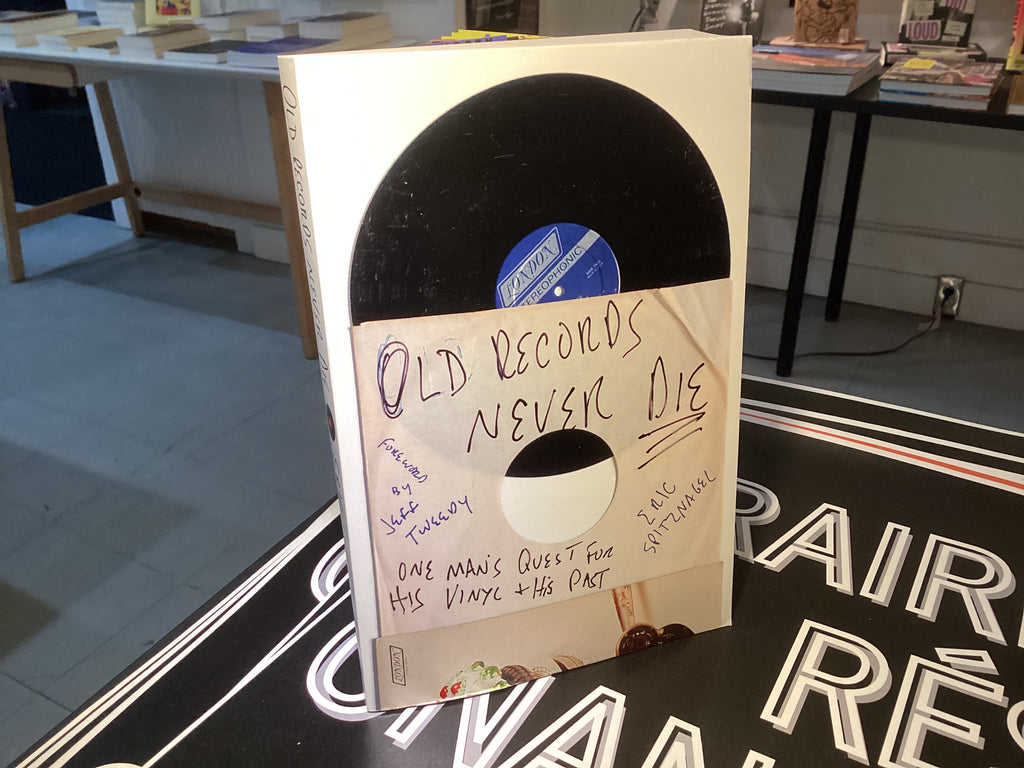 LOUD
OLD RECORDS NEVER
LONDON
STEREOPHONIC
OLD RECORDS
NEVER DIE
FOREWORD
BY
JEFF
TWEEDY
ERIC
SPITZNAGEL
ONE MAN'S QUEST FOR
HIS VINYL + HIS PAST
LONDON
RAIR
RÉ